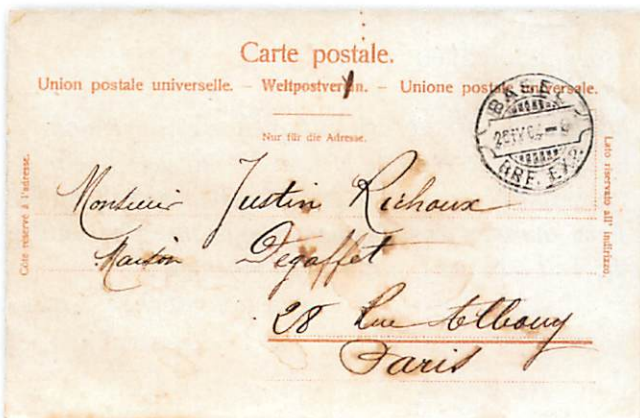 Carte postale.
Union postale universelle. – Weltpostverein. – Unione postale universale.
Nur für die Adresse.
Côté réservé à l'adresse.
Lato riservato all' indirizzo.
BASEL
BRF. EXP.
Monsieur Justin Richoux
Maison Degaffet
28 Rue Albouy
Paris